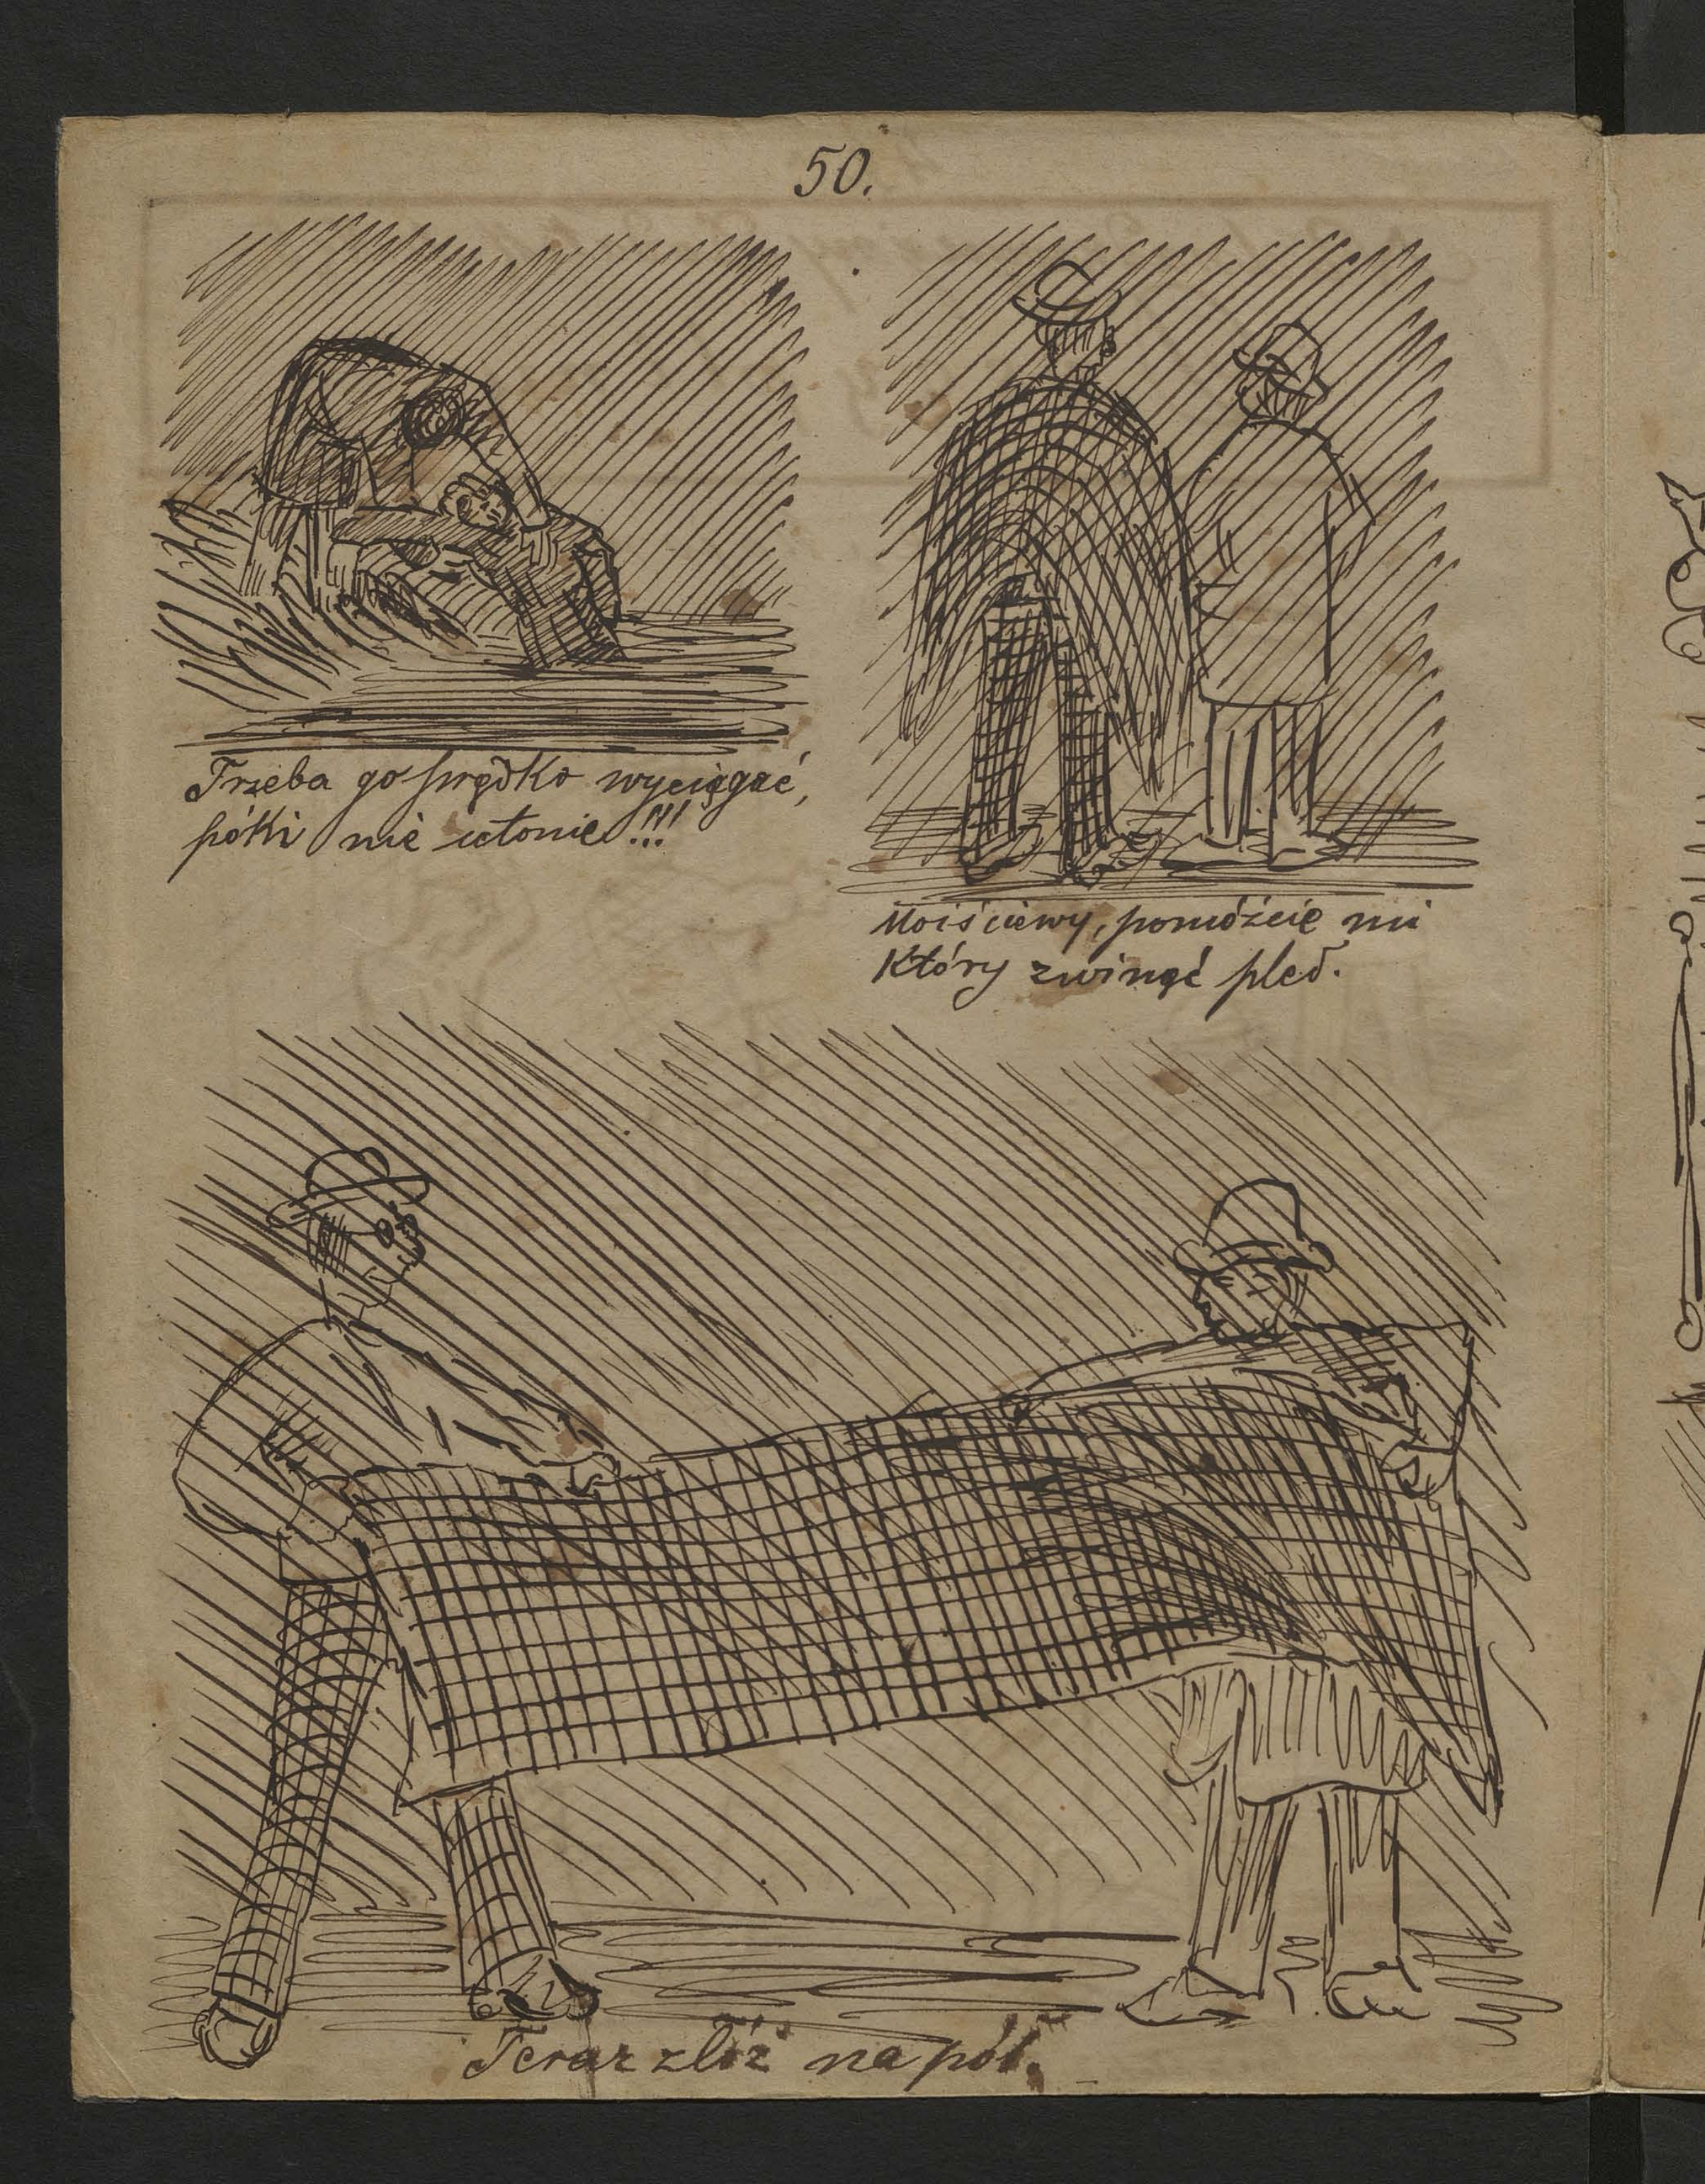 50.
Trzeba go prędko wyciągać,
póki nie utonie!!!
Moiściewy, pomóżcie mi
który zwinąć pled.
Teraz złóż na pół.